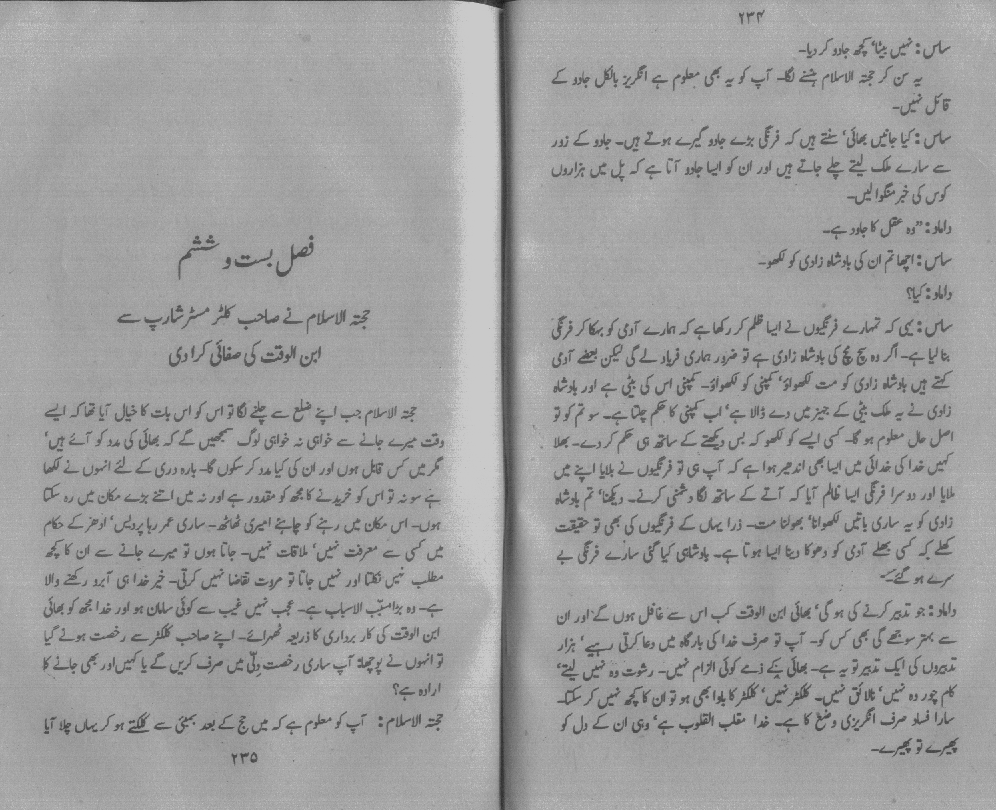 ۲۳۴
ساس: نہیں بیٹا‘ کچھ جادو کر دیا۔
یہ سن کر حجتہ الاسلام ہنسنے لگا۔ آپ کو یہ بھی معلوم ہے انگریز بالکل جادو کے
قائل نہیں۔
ساس: کیا جانیں بھائی‘ سنتے ہیں کہ فرنگی بڑے جادو گیرے ہوتے ہیں۔ جادو کے زور
سے سارے ملک لیتے چلے جاتے ہیں اور ان کو ایسا جادو آتا ہے کہ پل میں ہزاروں
کوس کی خبر منگوا لیں۔
داماد: ”وہ عقل کا جادو ہے۔
ساس: اچھا تم ان کی بادشاہ زادی کو لکھو۔
داماد: کیا؟
ساس: یہی کہ تمہارے فرنگیوں نے ایسا ظلم کر رکھا ہے کہ ہمارے آدمی کو بہکا کر فرنگی
بنا لیا ہے۔ اگر وہ سچ مچ کی بادشاہ زادی ہے تو ضرور ہماری فریاد لے گی لیکن بعضے آدمی
کہتے ہیں بادشاہ زادی کو مت لکھواؤ‘ کمپنی کو لکھواؤ۔ کمپنی اس کی بیٹی ہے اور بادشاہ
زادی نے یہ ملک بیٹی کے جہیز میں دے ڈالا ہے‘ اب کمپنی کا حکم چلتا ہے۔ سو تم کو تو
اصل حال معلوم ہو گا۔ کسی ایسے کو لکھو کہ بس دیکھتے کے ساتھ ہی حکم کر دے۔ بھلا
کہیں خدا کی خدائی میں ایسا بھی اندھیر ہوا ہے کہ آپ ہی تو فرنگیوں نے بلایا اپنے میں
ملایا اور دوسرا فرنگی ایسا ظالم آیا کہ آتے کے ساتھ لگا دشمنی کرنے۔ دیکھنا‘ تم بادشاہ
زادی کو یہ ساری باتیں لکھوانا‘ بھولنا مت۔ ذرا یہاں کے فرنگیوں کی بھی تو حقیقت
کھلے کہ کسی بھلے آدمی کو دھوکا دینا ایسا ہوتا ہے۔ بادشاہی کیا گئی سارے فرنگی بے
سرے ہو گئے۔
داماد: جو تدبیر کرنے کی ہو گی‘ بھائی ابن الوقت کب اس سے غافل ہوں گے اور ان
سے بہتر سوجھے گی بھی کس کو۔ آپ تو صرف خدا کی بارگاہ میں دعا کرتی رہیے‘ ہزار
تدبیروں کی ایک تدبیر تو یہ ہے۔ بھائی کے ذمے کوئی الزام نہیں۔ رشوت وہ نہیں لیتے‘
کام چور وہ نہیں‘ نالائق نہیں۔ کلکٹر نہیں‘ کلکٹر کا باوا بھی ہو تو ان کا کچھ نہیں کر سکتا۔
سارا فساد صرف انگریزی وضع کا ہے۔ خدا مقلب القلوب ہے‘ وہی ان کے دل کو
پھیرے تو پھیرے۔
فصل بست و ششم
حجتہ الاسلام نے صاحب کلکٹر مسٹر شارپ سے
ابن الوقت کی صفائی کرا دی
حجتہ الاسلام جب اپنے ضلع سے چلنے لگا تو اس کو اس بات کا خیال آیا تھا کہ ایسے
وقت میرے جانے سے خواہی نہ خواہی لوگ سمجھیں گے کہ بھائی کی مدد کو آئے ہیں‘
مگر میں کس قابل ہوں اور ان کی کیا مدد کر سکوں گا۔ بارہ دری کے لئے انہوں نے لکھا
ہے سو نہ تو اس کو خریدنے کا مجھ کو مقدور ہے اور نہ میں اتنے بڑے مکان میں رہ سکتا
ہوں۔ اس مکان میں رہنے کو چاہئے امیری ٹھاٹھ۔ ساری عمر رہا پردیس‘ ادھر کے حکام
میں کسی سے معرفت نہیں‘ ملاقات نہیں۔ جاتا ہوں تو میرے جانے سے ان کا کچھ
مطلب نہیں نکلتا اور نہیں جاتا تو مروت تقاضا نہیں کرتی۔ خیر خدا ہی آبرو رکھنے والا
ہے۔ وہ بڑا مسبّب الاسباب ہے۔ عجب نہیں غیب سے کوئی سامان ہو اور خدا مجھ کو بھائی
ابن الوقت کی کار برداری کا ذریعہ ٹھہرائے۔ اپنے صاحب کلکٹر سے رخصت ہونے گیا
تو انہوں نے پوچھا: آپ ساری رخصت دلّی میں صرف کریں گے یا کہیں اور بھی جانے کا
ارادہ ہے؟
حجتہ الاسلام: آپ کو معلوم ہے کہ میں حج کے بعد بمبئی سے کلکتے ہو کر یہاں چلا آیا
۲۳۵